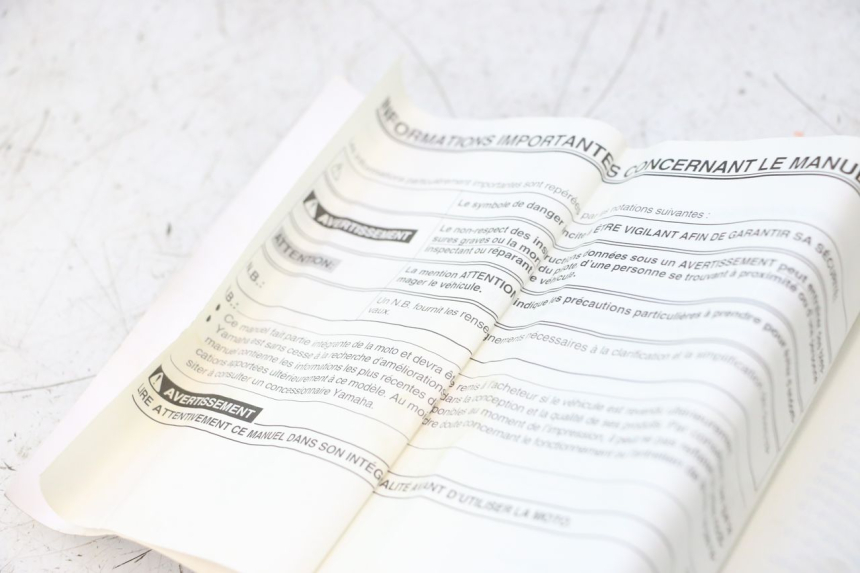 INFORMATIONS IMPORTANTES CONCERNANT LE MANUE
Les informations particulièrement importantes sont repérées par les notations suivantes :
Le symbole de danger incite à ÊTRE VIGILANT AFIN DE GARANTIR SA SÉCURITÉ
AVERTISSEMENT
Le non-respect des instructions données sous un AVERTISSEMENT peut
sures graves ou la mort du pilote, d'une personne se trouvant à proximité ou
inspectant ou réparant le véhicule.
ATTENTION:
La mention ATTENTION indique les précautions particulières à prendre pour
mager le véhicule.
N.B.:
Un N.B. fournit les renseignements nécessaires à la clarification et la simplification
vaux.
N.B.:
• Ce manuel fait partie intégrante de la moto et devra être remis à l'acheteur si le véhicule est
• Yamaha est sans cesse à la recherche d'améliorations dans la conception et la qualité de ses produits.
manuel contienne les informations les plus récentes disponibles au moment de l'impression, il peut ne pas
cations apportées ultérieurement à ce modèle. Au moindre doute concernant le fonctionnement ou l'entretien de
siter à consulter un concessionnaire Yamaha.
AVERTISSEMENT
LIRE ATTENTIVEMENT CE MANUEL DANS SON INTÉGRALITÉ AVANT D'UTILISER LA MOTO